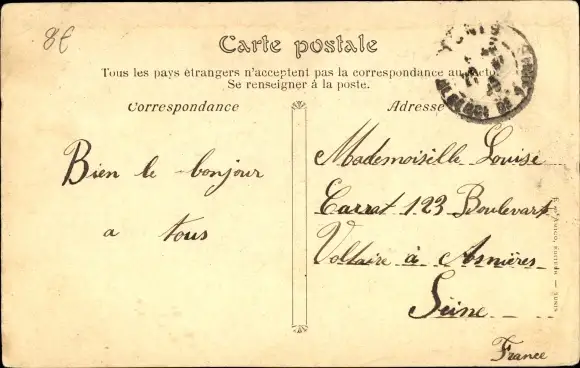 8€
Carte postale
Tous les pays étrangers n'acceptent pas la correspondance au recto
Se renseigner à la poste.
Correspondance
Adresse
TUNIS
Bien le bonjour
a tous
Mademoiselle Louise
Carrat 123 Boulevart
Voltaire à Asnières
Seine
France
ÉDITEUR — TUNIS